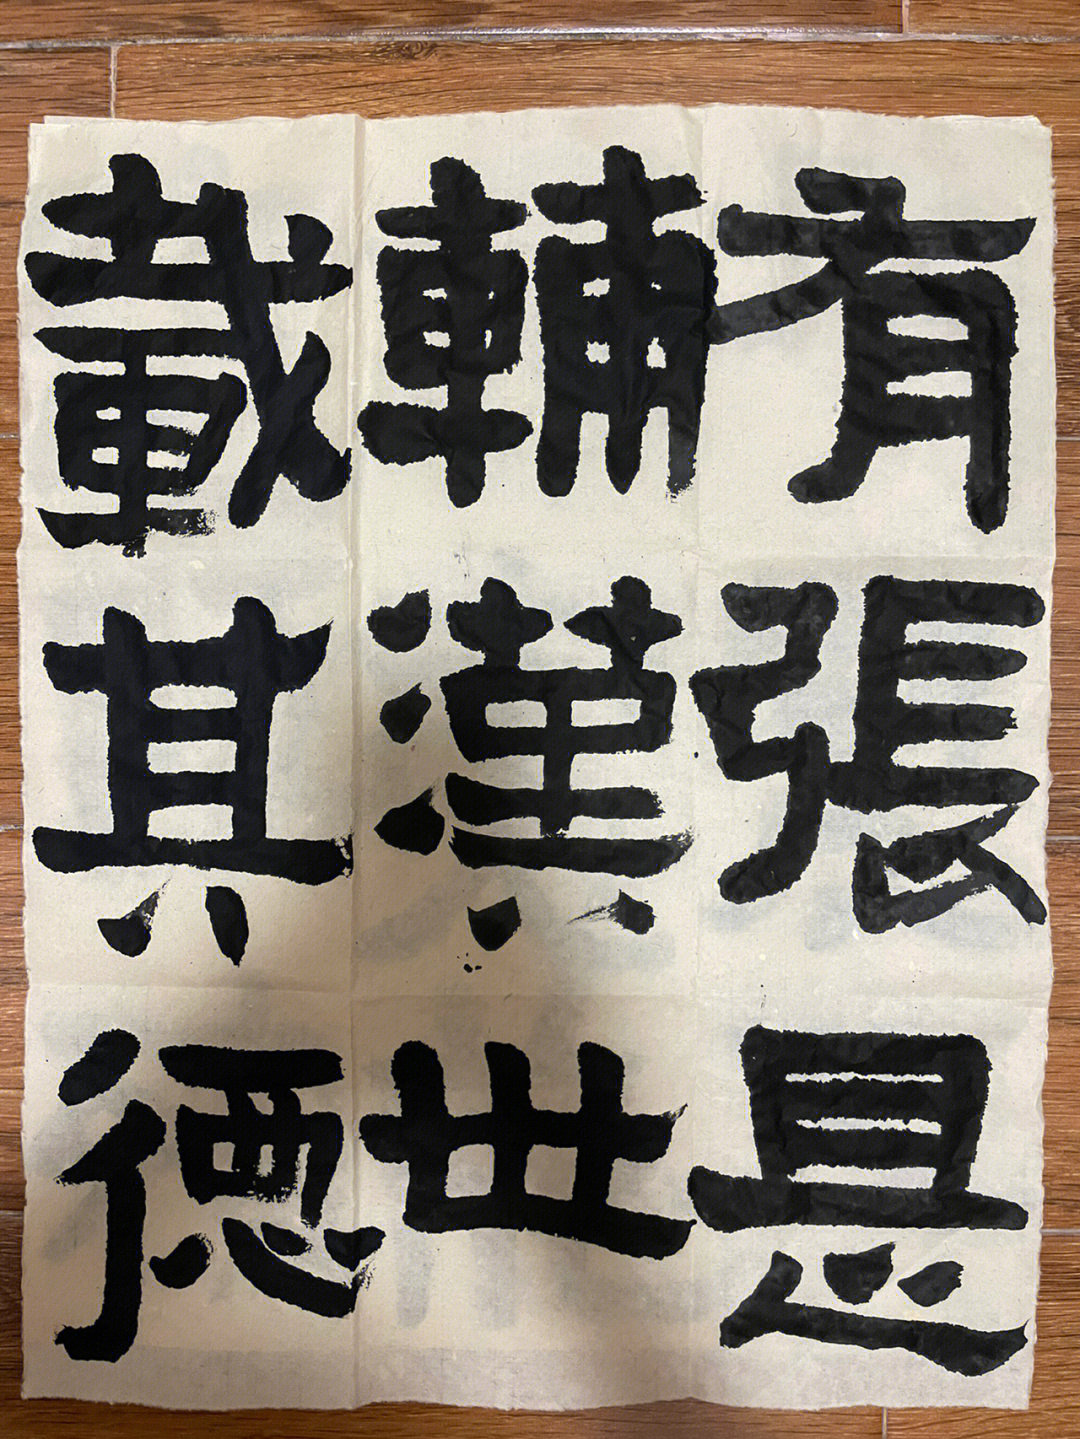 有張是
輔漢世
載其德